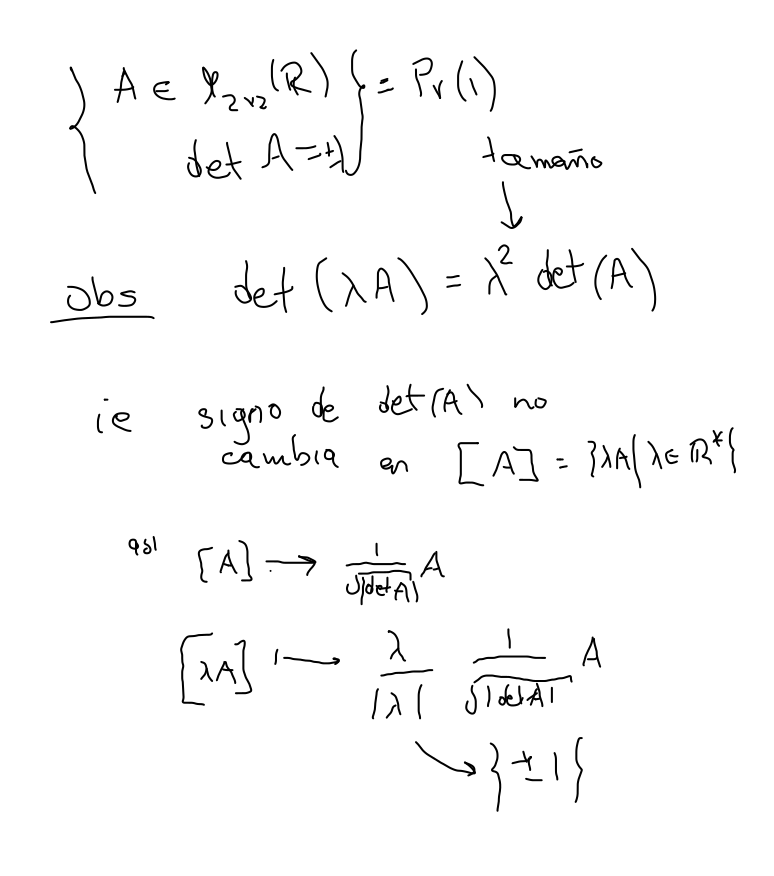 { A ∈ M₂ₓ₂(ℝ) } = Pr(1)
det A = ±1
tamaño
↓
Obs det (λA) = λ² det(A)
ie signo de det(A) no
cambia en [A] = {λA | λ ∈ ℝ*}
así [A] → 1/√|det A| A
[λA] ↦ λ/|λ| 1/√|det A| A
↘ {±1}